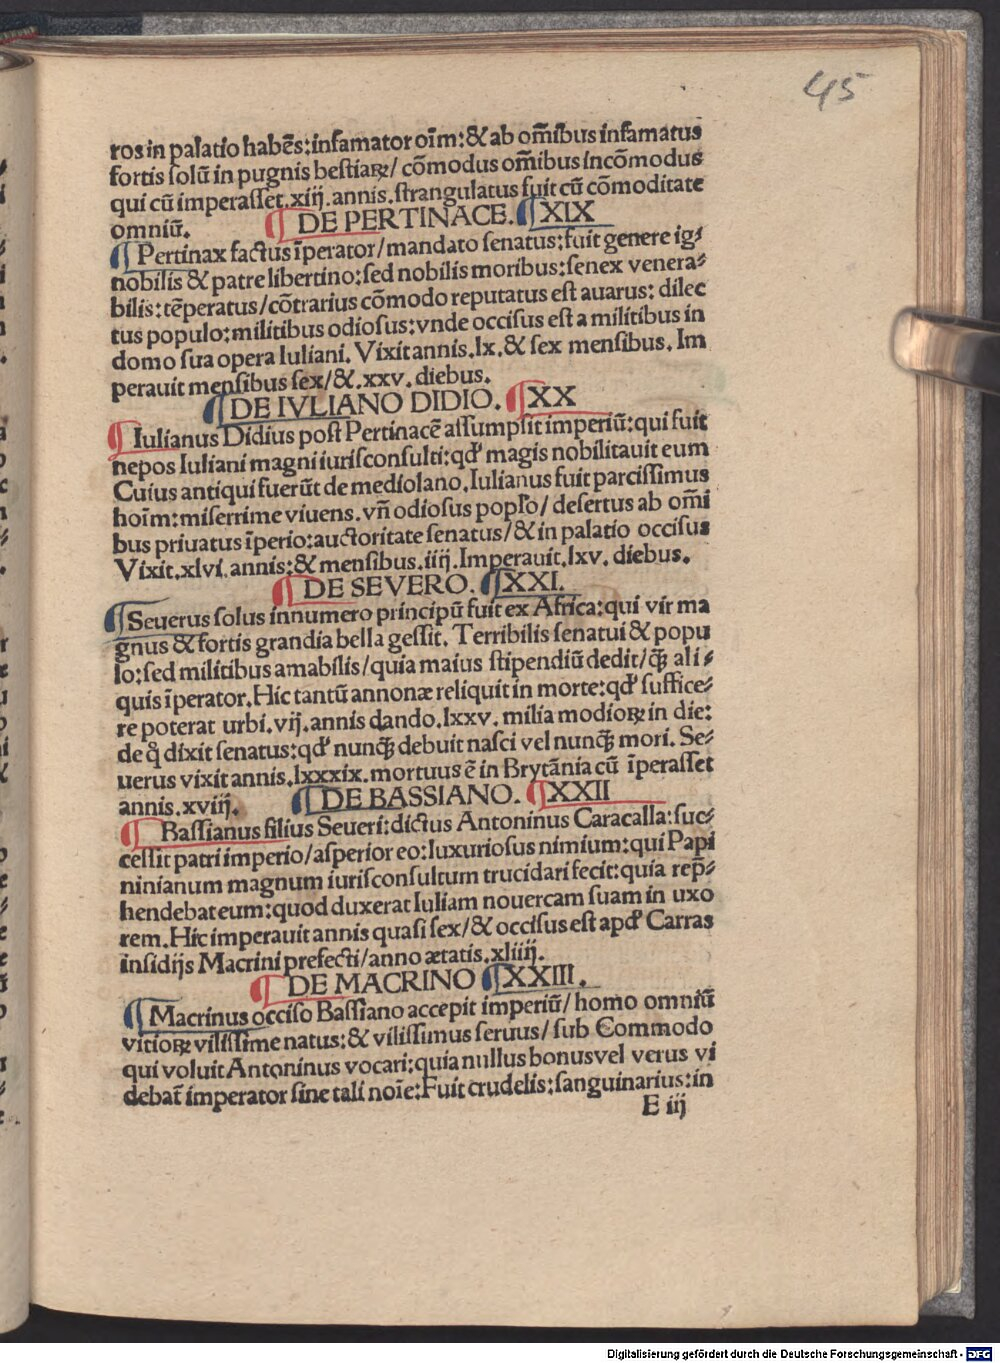 45
ros in palatio habēs:infamator oīm:& ab om̄ibus infamatus
fortis solū in pugnis bestiaꝝ/ cōmodus om̄ibus incōmodus
qui cū imperasset.xiij.annis.strangulatus fuit cū cōmoditate
omniū. ¶ DE PERTINACE. ¶ XIX
¶ Pertinax factus īperator/mandato senatus:fuit genere ig⸗
nobilis & patre libertino:sed nobilis moribus:senex venera⸗
bilis:tēperatus/cōtrarius cōmodo reputatus est auarus: dilec
tus populo:militibus odiosus:vnde occisus est a militibus in
domo sua opera Iuliani. Vixit annis.lx.& sex mensibus. Im
perauit mensibus sex/&.xxv. diebus.
¶ DE IVLIANO DIDIO. ¶ XX
¶ Iulianus Didius post Pertinacē assumpsit imperiū:qui fuit
nepos Iuliani magni iurisconsulti:qđ magis nobilitauit eum
Cuius antiqui fuerūt de mediolano.Iulianus fuit parcissimus
hoīm:miserrime viuens.vn̄ odiosus popľo/ desertus ab om̄i
bus priuatus īperio:auctoritate senatus/& in palatio occisus
Vixit.xlvi.annis:& mensibus.iiij.Imperauit.lxv. diebus.
¶ DE SEVERO. ¶ XXI.
¶ Seuerus solus innumero principū fuit ex Africa:qui vir ma
gnus & fortis grandia bella gessit. Terribilis senatui & popu
lo:sed militibus amabilis/quia maius stipendiū dedit/ꝙ̄ ali⸗
quis īperator.Hic tantū annonæ reliquit in morte:qđ suffice⸗
re poterat urbi.vij.annis dando.lxxv. milia modioꝝ in die:
de q̄ dixit senatus:qđ nunꝙ̄ debuit nasci vel nunꝙ̄ mori. Se⸗
uerus vixit annis.lxxxix.mortuus ē in Brytānia cū īperasset
annis.xviij. ¶ DE BASSIANO. ¶ XXII
¶ Bassianus filius Seueri:dictus Antoninus Caracalla:suc⸗
cessit patri imperio/asperior eo:luxuriosus nimium:qui Papi
ninianum magnum iurisconsultum trucidari fecit:quia rep̄⸗
hendebat eum:quod duxerat Iuliam nouercam suam in uxo
rem.Hic imperauit annis quasi sex/& occisus est apđ Carras
insidijs Macrini prefecti/anno ætatis.xliiij.
¶ DE MACRINO ¶ XXIII.
¶ Macrinus occiso Bassiano accepit imperiū/ homo omniū
vitioꝝ vilissime natus:& vilissimus seruus/ sub Commodo
qui voluit Antoninus vocari:quia nullus bonus vel verus vi
debat̄ imperator sine tali noīe:Fuit crudelis:sanguinarius:in
E iij
Digitalisierung gefördert durch die Deutsche Forschungsgemeinschaft - DFG